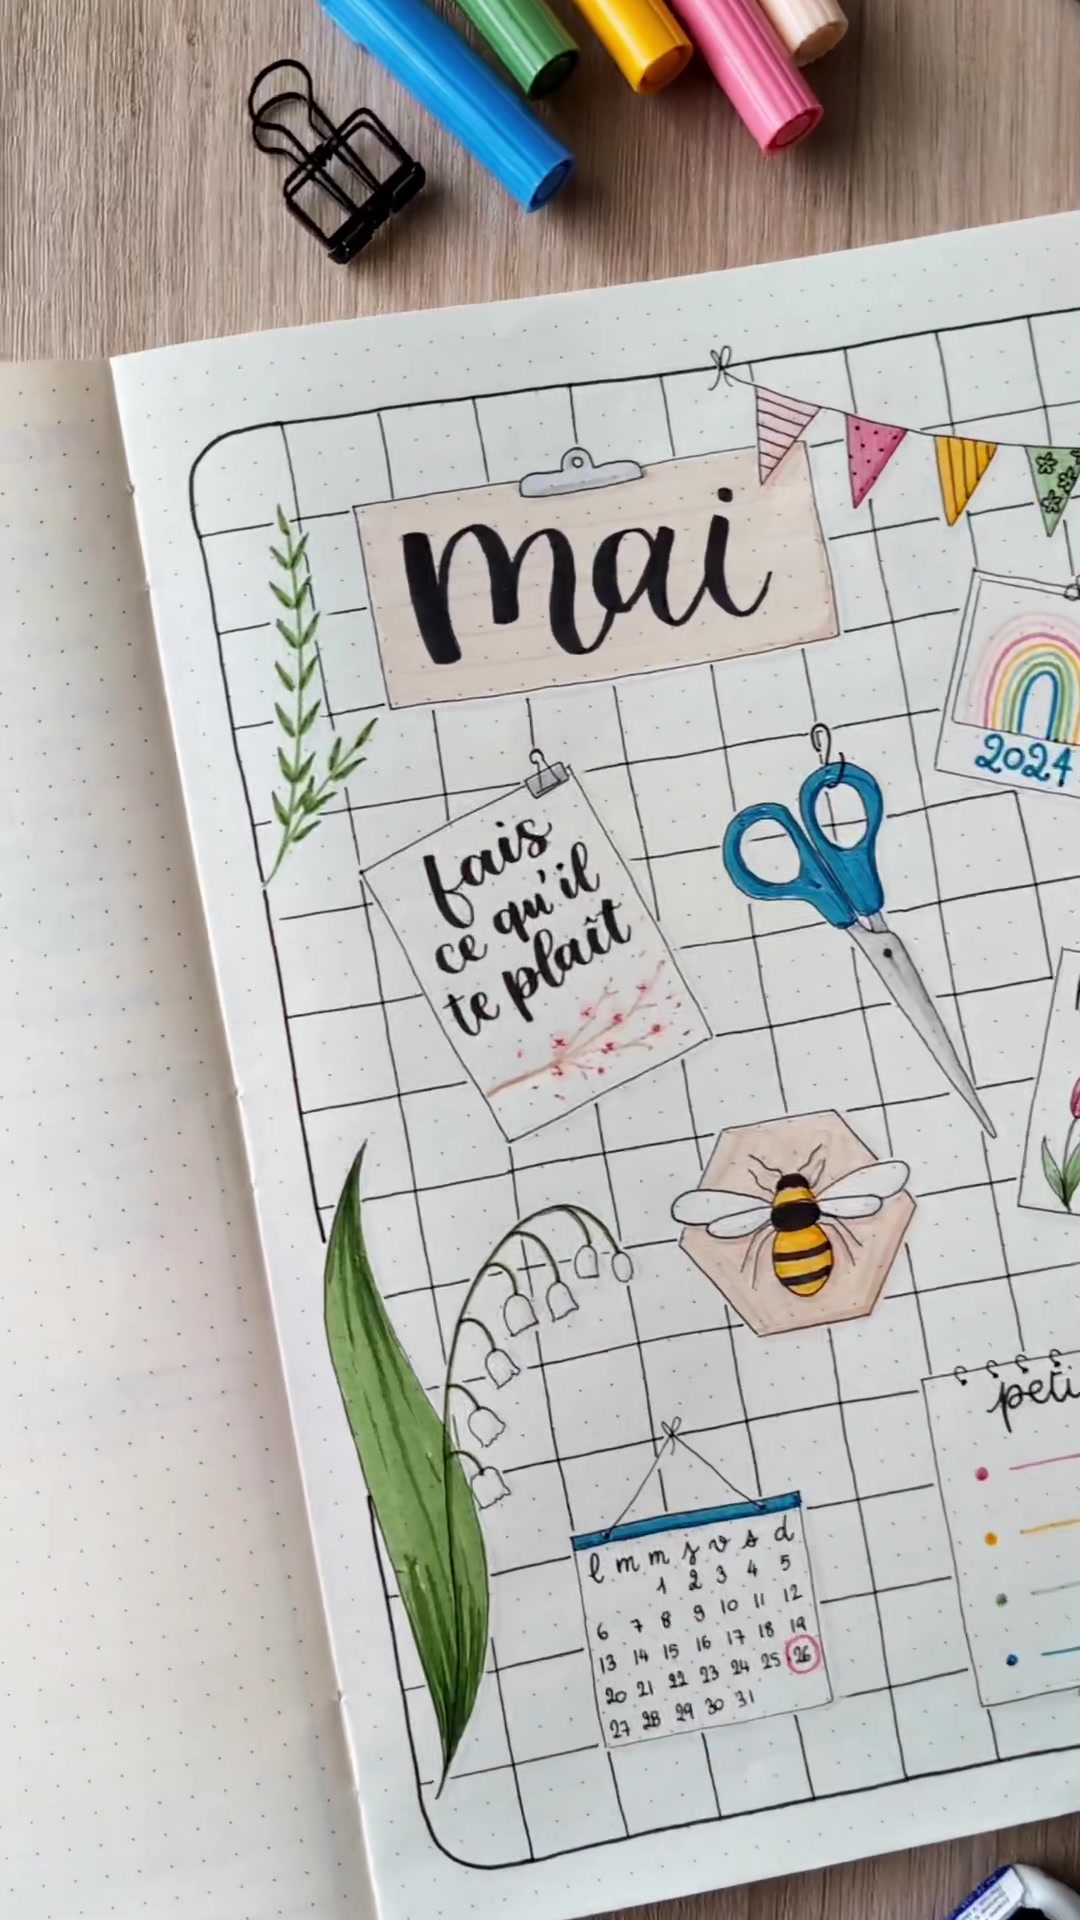 mai
2024
fais
ce qu'il
te plaît
l m m j v s d
1 2 3 4 5
6 7 8 9 10 11 12
13 14 15 16 17 18 19
20 21 22 23 24 25 26
27 28 29 30 31